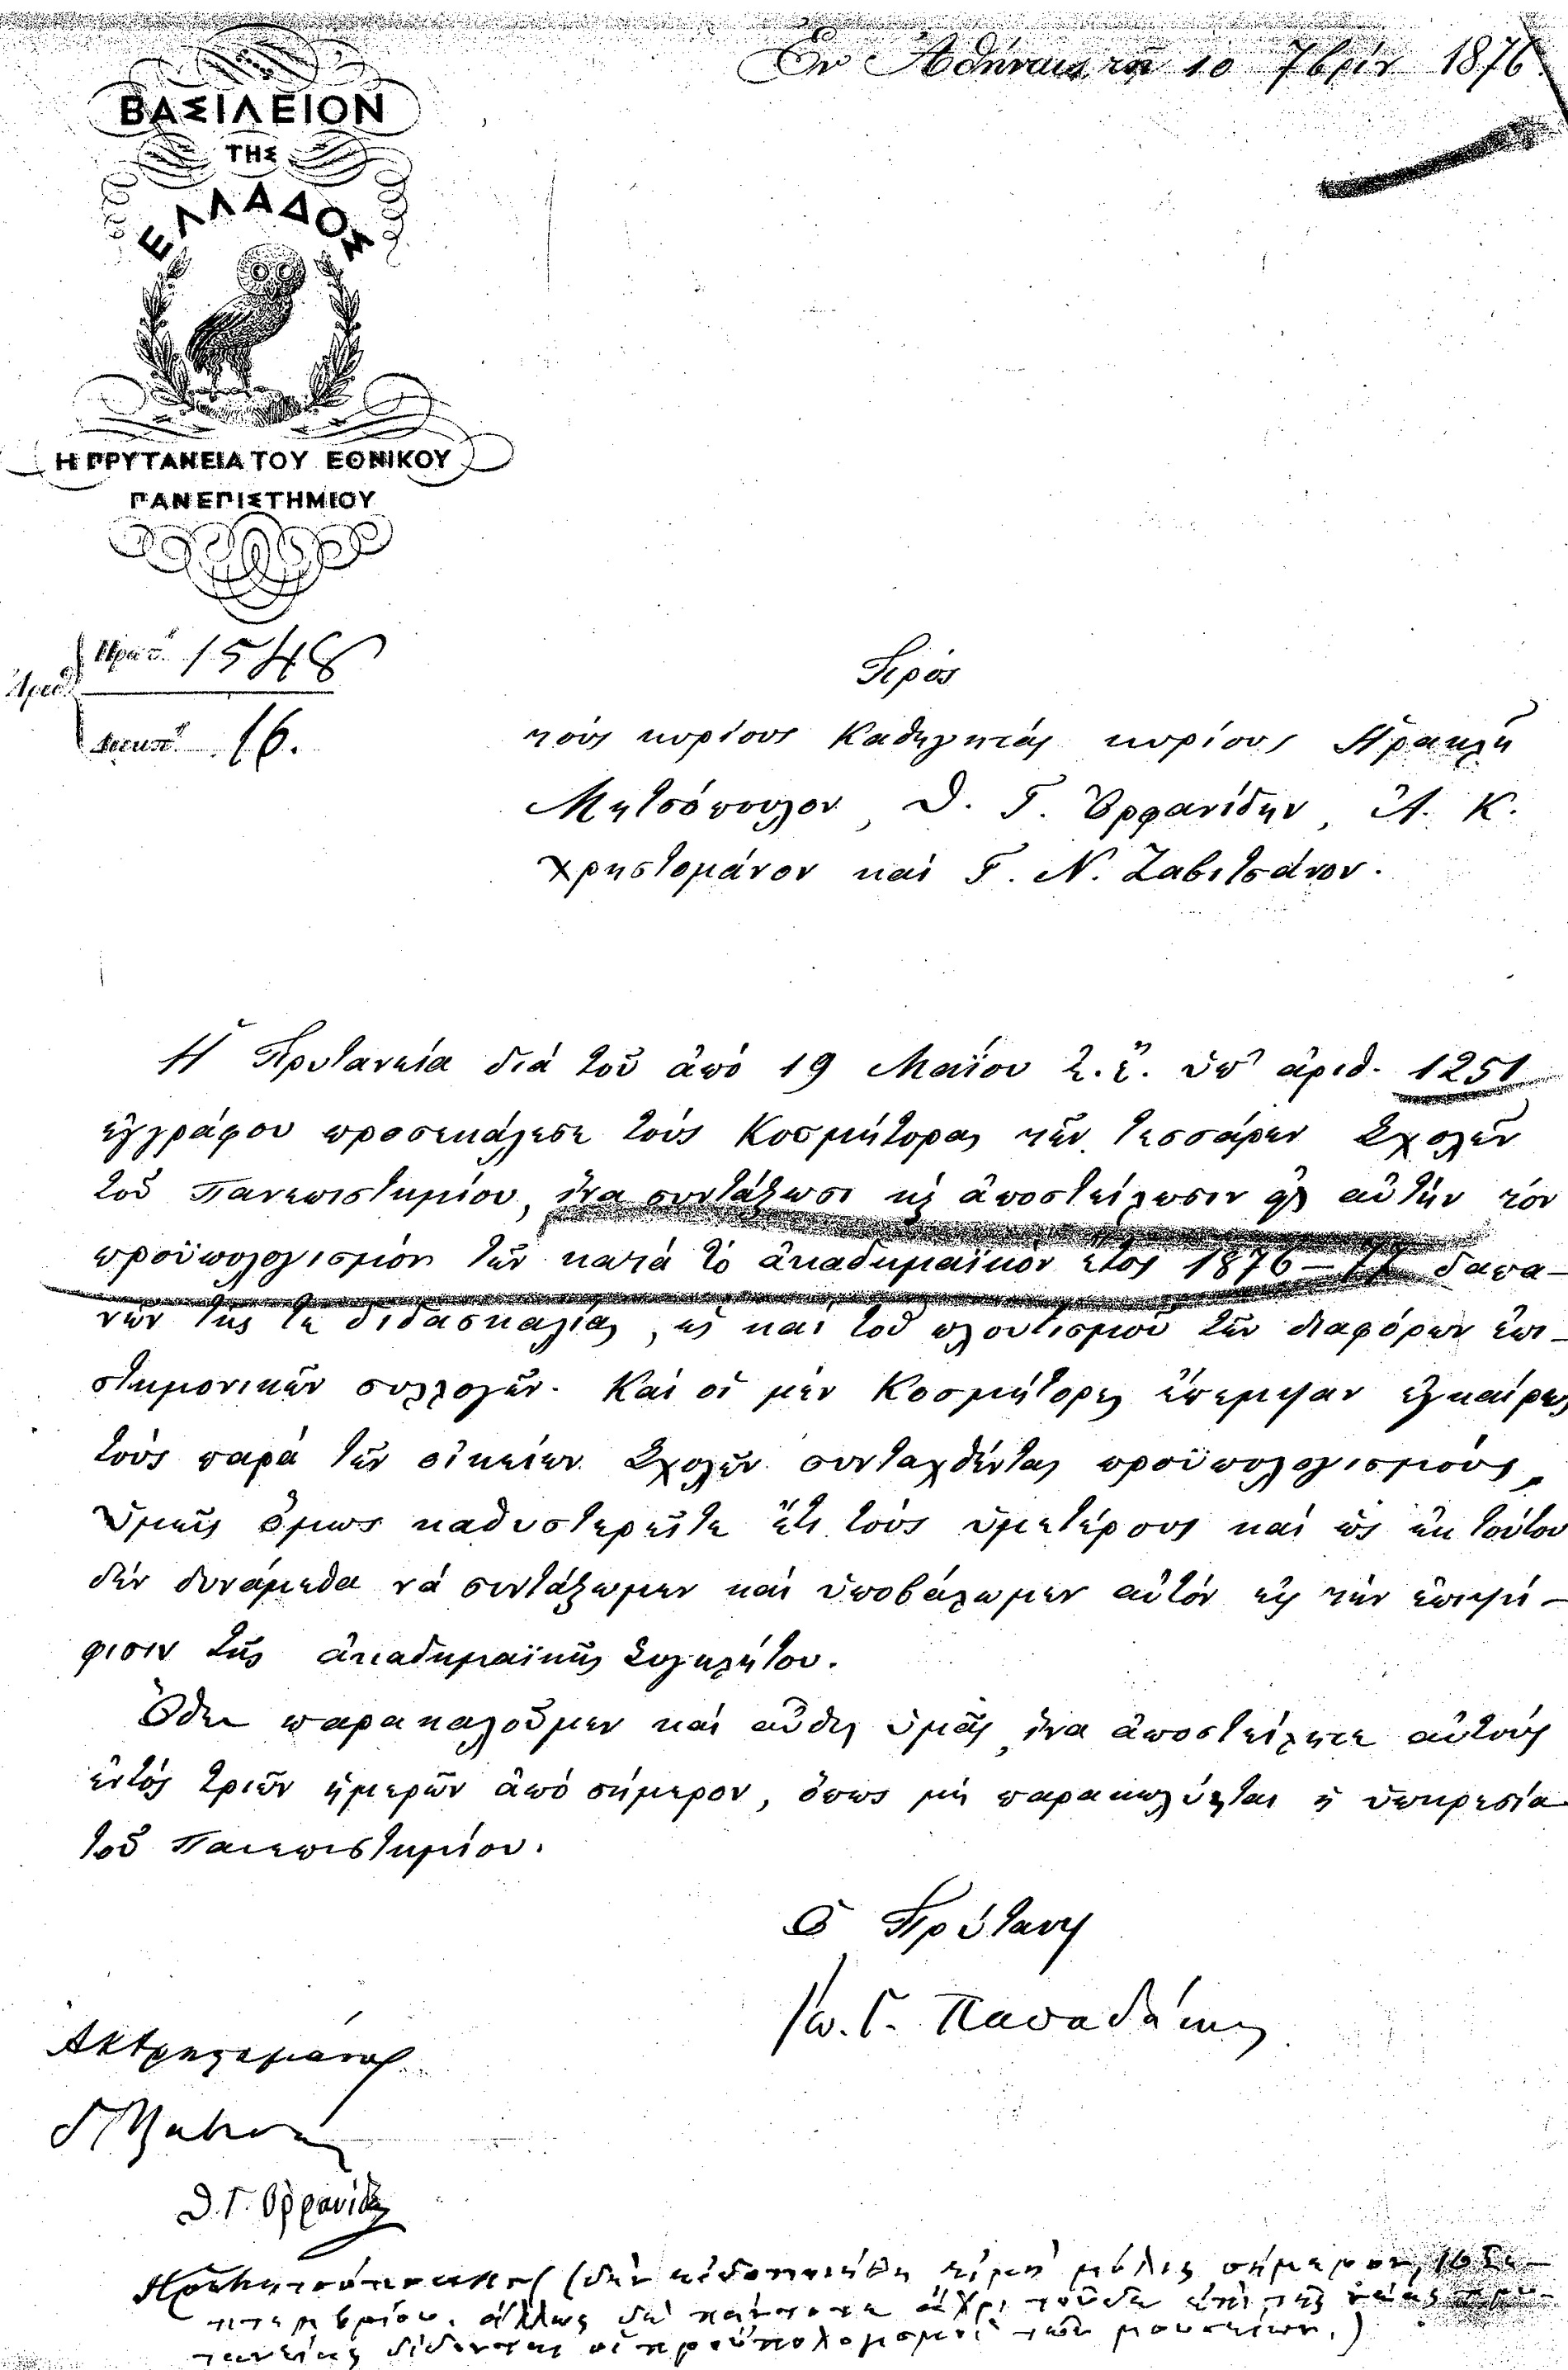 Ἐν Ἀθήναις τῇ 10 7βρίου 1876.
ΒΑΣΙΛΕΙΟΝ
ΤΗΣ
ΕΛΛΑΔΟΣ
Η ΠΡΥΤΑΝΕΙΑ ΤΟΥ ΕΘΝΙΚΟΥ
ΠΑΝΕΠΙΣΤΗΜΙΟΥ
Ἀριθ. Πρωτ. 1548
16.
Πρὸς
τοὺς κυρίους Καθηγητάς κυρίους Ἡρακλῆ
Μητσόπουλον, Θ. Γ. Ὀρφανίδην, Ἀ. Κ.
Χρηστομάνον καὶ Γ. Ν. Ζαβιτσάνον.
Ἡ Πρυτανεία διὰ τοῦ ἀπὸ 19 Μαΐου ἐ.ἔ. ὑπ' ἀριθ. 1251
ἐγγράφου προσεκάλεσε τοὺς Κοσμήτορας τῶν τεσσάρων Σχολῶν
τοῦ Πανεπιστημίου, ἵνα συντάξωσι κὶ ἀποστείλωσιν εἰς αὐτὴν τὸν
προϋπολογισμὸν τῶν κατὰ τὸ ἀκαδημαϊκὸν ἔτος 1876–77 δαπα–
νῶν τῆς τε διδασκαλίας, ὡς καὶ τοῦ πλουτισμοῦ τῶν διαφόρων ἐπι–
στημονικῶν συλλογῶν. Καὶ οἱ μὲν Κοσμήτορες ἔπεμψαν ἐγκαίρως
τοὺς παρὰ τῶν οἰκείων Σχολῶν συνταχθέντας προϋπολογισμούς,
Ὑμεῖς ὅμως καθυστερεῖτε ἔτι τοὺς ὑμετέρους καὶ ὡς ἐκ τούτου
δὲν δυνάμεθα νὰ συντάξωμεν καὶ ὑποβάλωμεν αὐτὸν εἰς τὴν ἐπιψή–
φισιν τῆς ἀκαδημαϊκῆς Συγκλήτου.
Ὅθεν παρακαλοῦμεν καὶ αὖθις ὑμᾶς, ἵνα ἀποστείλητε αὐτοὺς
ἐντὸς τριῶν ἡμερῶν ἀπὸ σήμερον, ὅπως μὴ παρακωλύηται ἡ ὑπηρεσία
τοῦ Πανεπιστημίου.
Ὁ Πρύτανις
Ἰω. Γ. Παπαδάκης
ΑΚΧρηστομάνος
Θ. Γ. Ὀρφανίδης
(δὲν εἰδοποιήθη εἰμὴ μόλις σήμερον, 16 Σε–
πτεμβρίου. ἄλλως δὲ πάντοτε ἄχρι τοῦδε ἐπὶ τῆς νέας πρυ–
τανείας δίδονται οἱ προϋπολογισμοὶ τῶν μουσείων.)